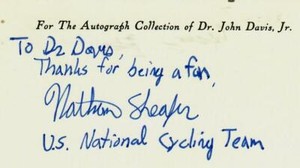 For The Autograph Collection of Dr. John Davis, Jr.
To Dr. Davis,
Thanks for being a fan,
Nathan Sheafor
U.S. National Cycling Team